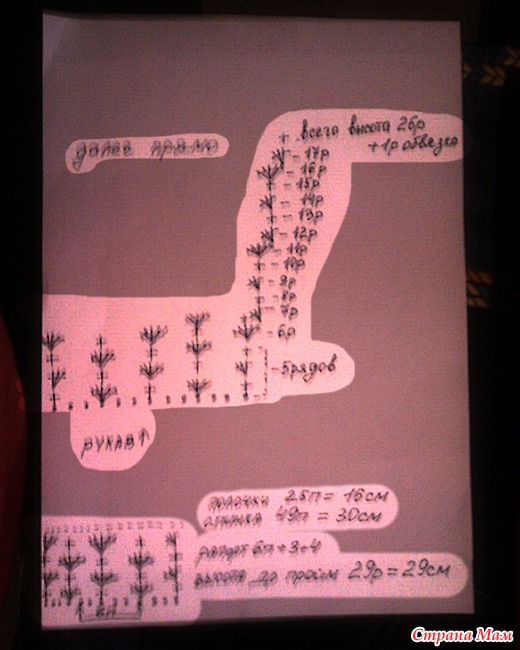 всего высота 26р
+1р обвязка
далее прямо
- 17р
- 16р
- 15р
- 14р
- 13р
- 12р
- 11р
- 10р
- 9р
- 8р
- 7р
- 6р
- 5рядов
рукав↑
полочки 25п = 16см
спинка 49п = 30см
раппорт 6п+3+4
высота до пройм 29р = 29см
6п
Страна Мам